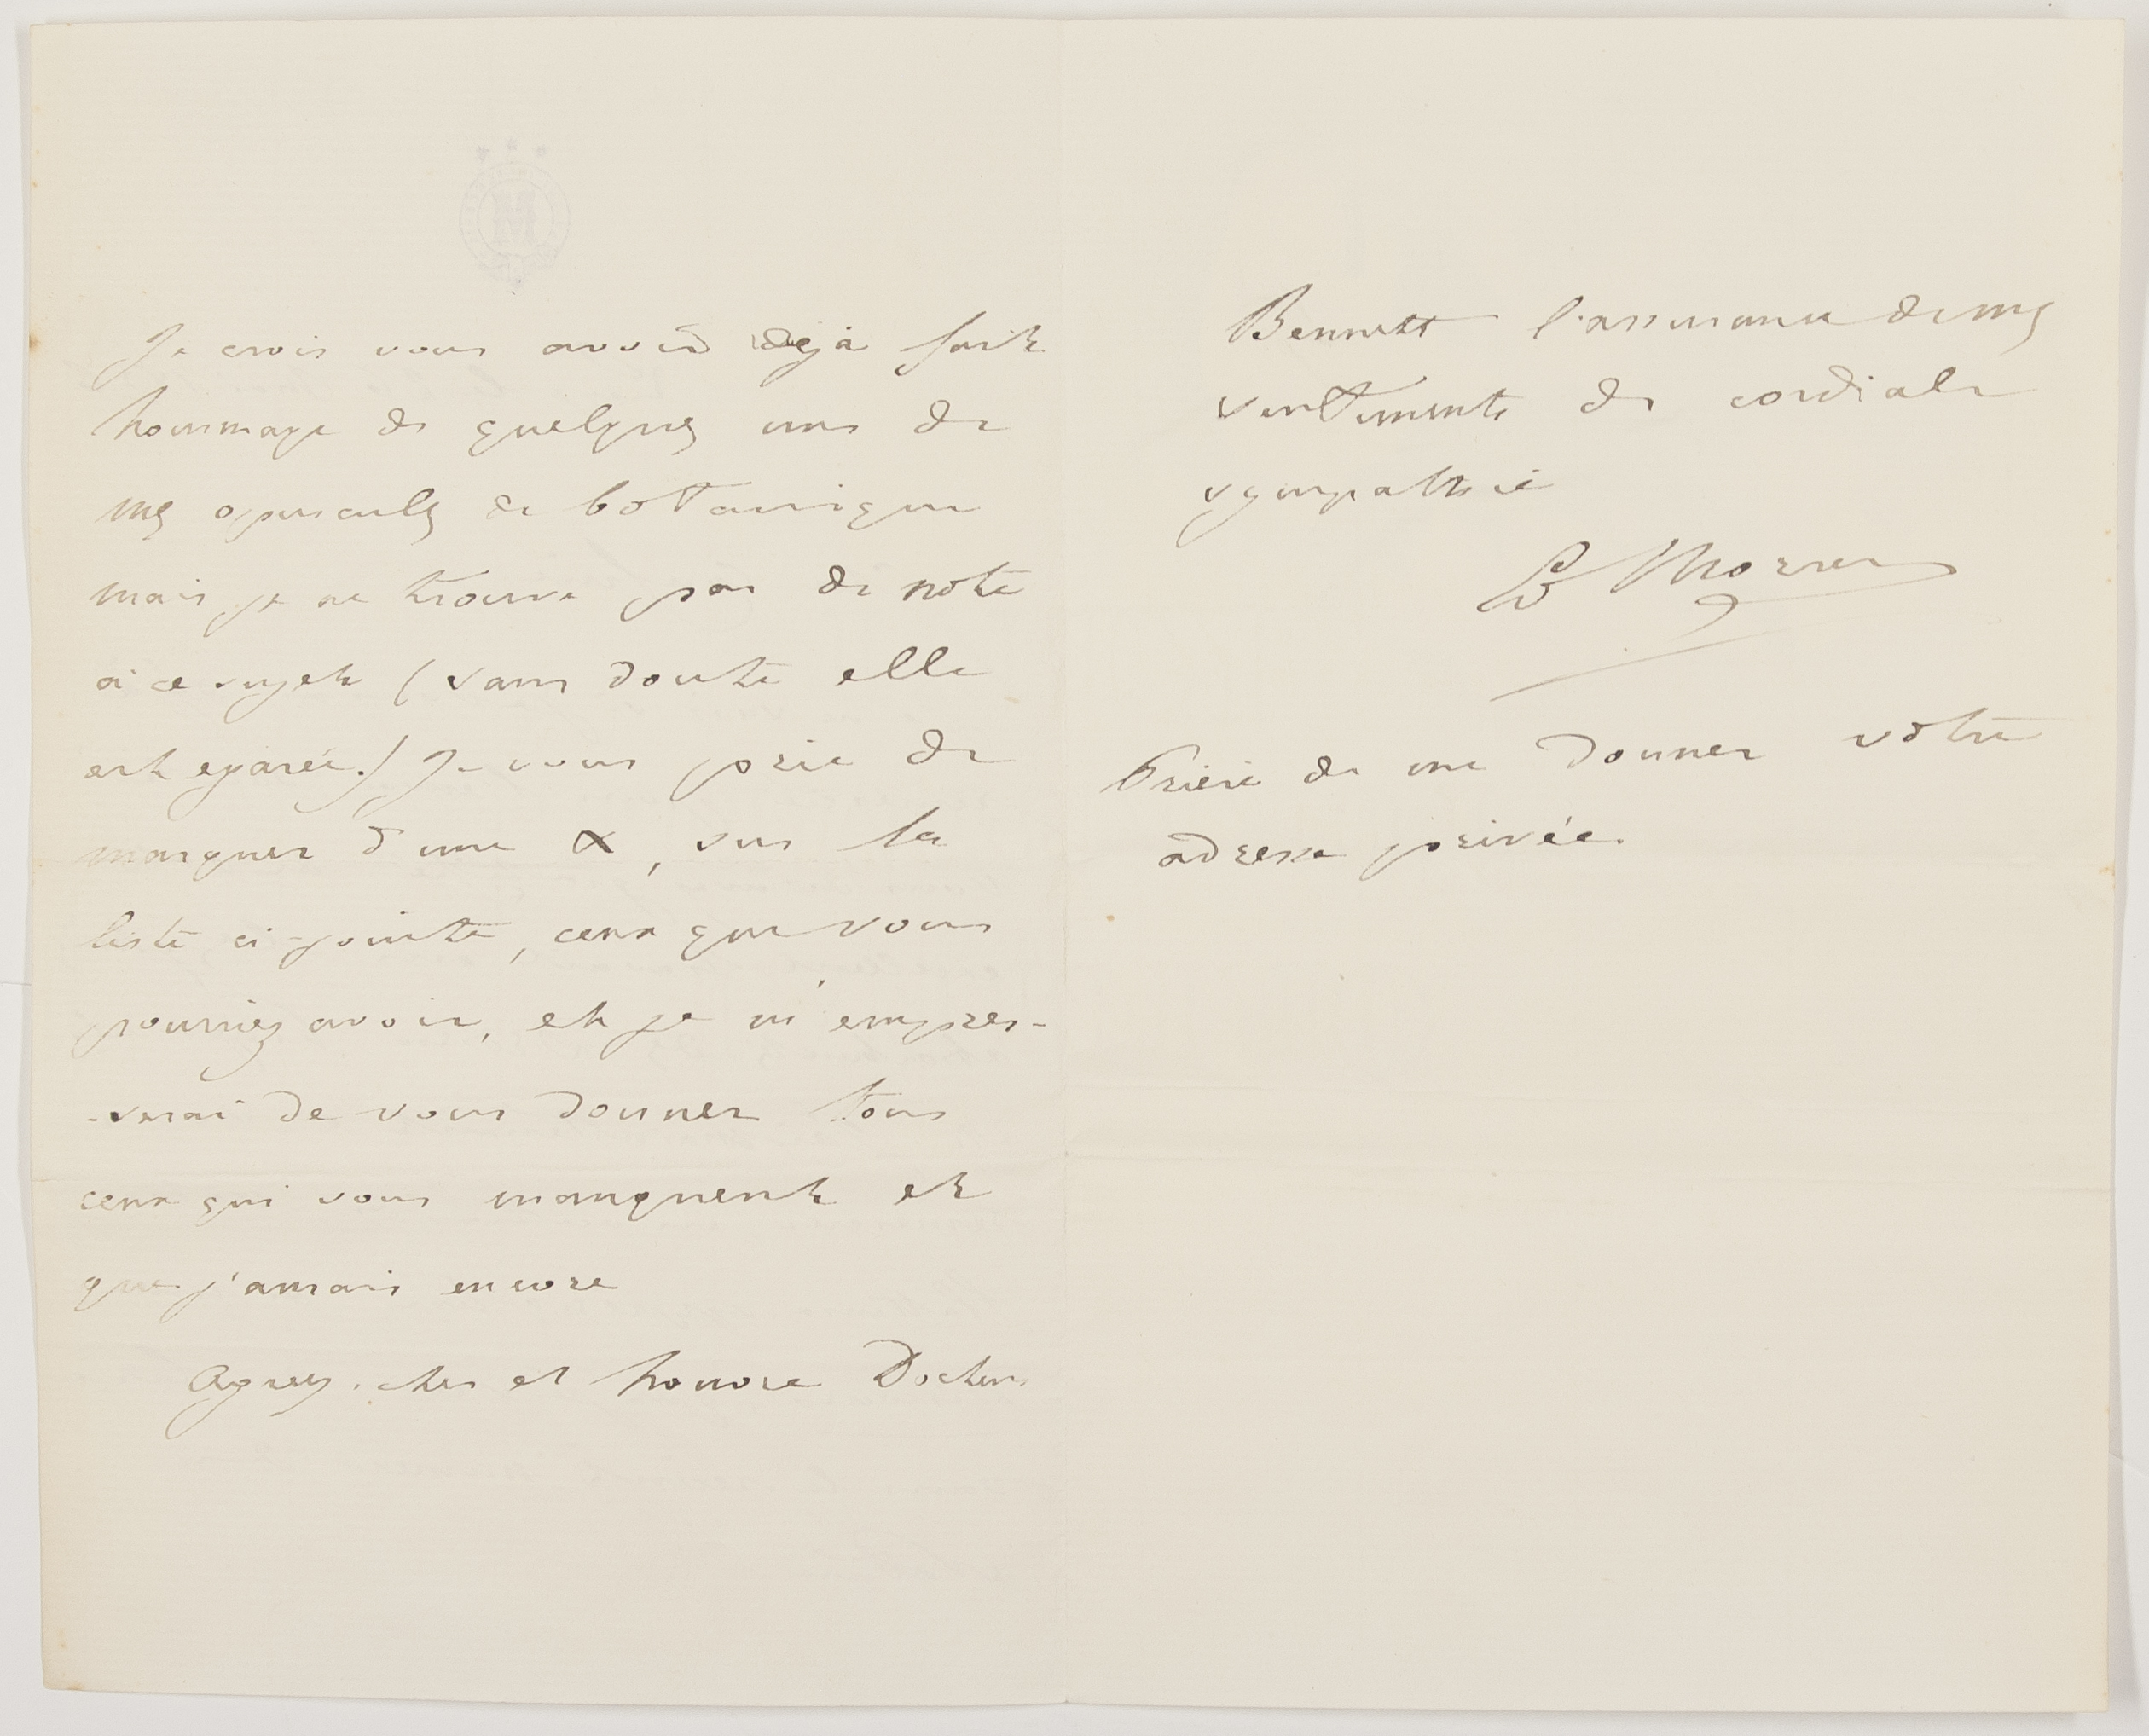 M
Je crois vous avoir déjà fait
hommage de quelques uns de
mes opuscules de botanique
mais je ne trouve pas de note
à ce sujet (sans doute elle
est egarée.) Je vous prie de
marquer d'une X, sur la
liste ci-jointe, ceux que vous
pourriez avoir, et je m'empres-
-serai de vous donner tous
ceux qui vous manquent et
que j'aurais encore
Agreez, cher et honoré Docteur
Bennett l'assurance de mes
sentiments de cordiale
sympathie
Morren
Prière de me donner votre
adresse privée.